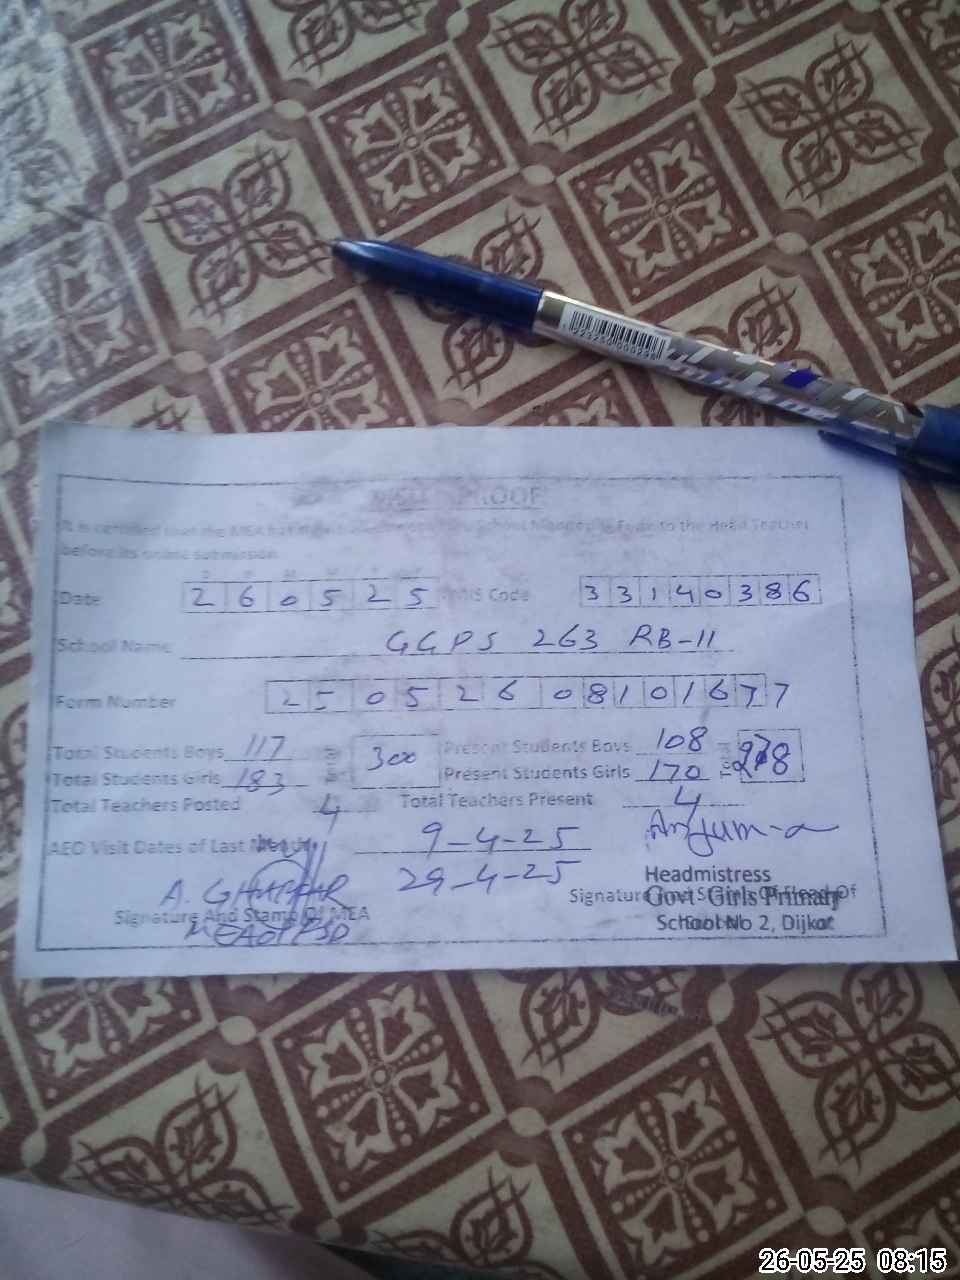 1223250000298
VISIT PROOF
It is certified that the MEA has School Monitoring Form to the Head Teacher
before its online submission
Date 2 6 0 5 2 5 EMIS Code 3 3 1 4 0 3 8 6
School Name GGPS 263 RB-II
Form Number 2 5 0 5 2 6 0 8 1 0 1 6 7 7
Total Students Boys 117 300 Present Students Boys 108 278
Total Students Girls 183 Present Students Girls 170
Total Teachers Posted 4 Total Teachers Present 4
AEO Visit Dates of Last Month 9-4-25 Anjum-a
29-4-25
A. GHAFFAR
Headmistress
Signature And Stamp Of MEA Signature And Stamp Of Head Of
Govt Girls Primary
School
School No 2, Dijkot
26-05-25 08:15